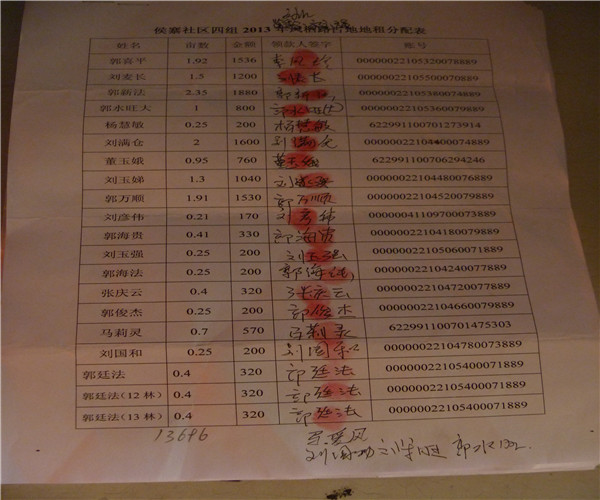 侯寨社区四组 2013 年 地租分配表
姓名 亩数 金额 领款人签字 账号
郭喜平 1.92 1536 00000022105320078889
刘麦长 1.5 1200 00000022105500070889
郭新法 2.35 1880 00000022105380074889
郭水旺大 1 800 00000022105360079889
杨慧敏 0.25 200 杨慧敏 622991100701273914
刘满仓 2 1600 刘满仓 00000022104400074889
董玉娥 0.95 760 董玉娥 622991100706294246
刘玉娣 1.3 1040 00000022104480076889
郭万顺 1.91 1530 郭万顺 00000022104520079889
刘彦伟 0.21 170 刘彦伟 00000041109700073889
郭海贵 0.41 330 郭海贵 00000022104180079889
刘玉强 0.25 200 刘玉强 00000022105060071889
郭海法 0.25 200 郭海法 00000022104240077889
张庆云 0.4 320 张庆云 00000022104720077889
郭俊杰 0.25 200 郭俊杰 00000022104660079889
马莉灵 0.7 570 马莉灵 622991100701475303
刘国和 0.25 200 刘国和 00000022104780073889
郭廷法 0.4 320 郭廷法 00000022105400071889
郭廷法(12 林) 0.4 320 郭廷法 00000022105400071889
郭廷法(13 林) 0.4 320 郭廷法 00000022105400071889
13696